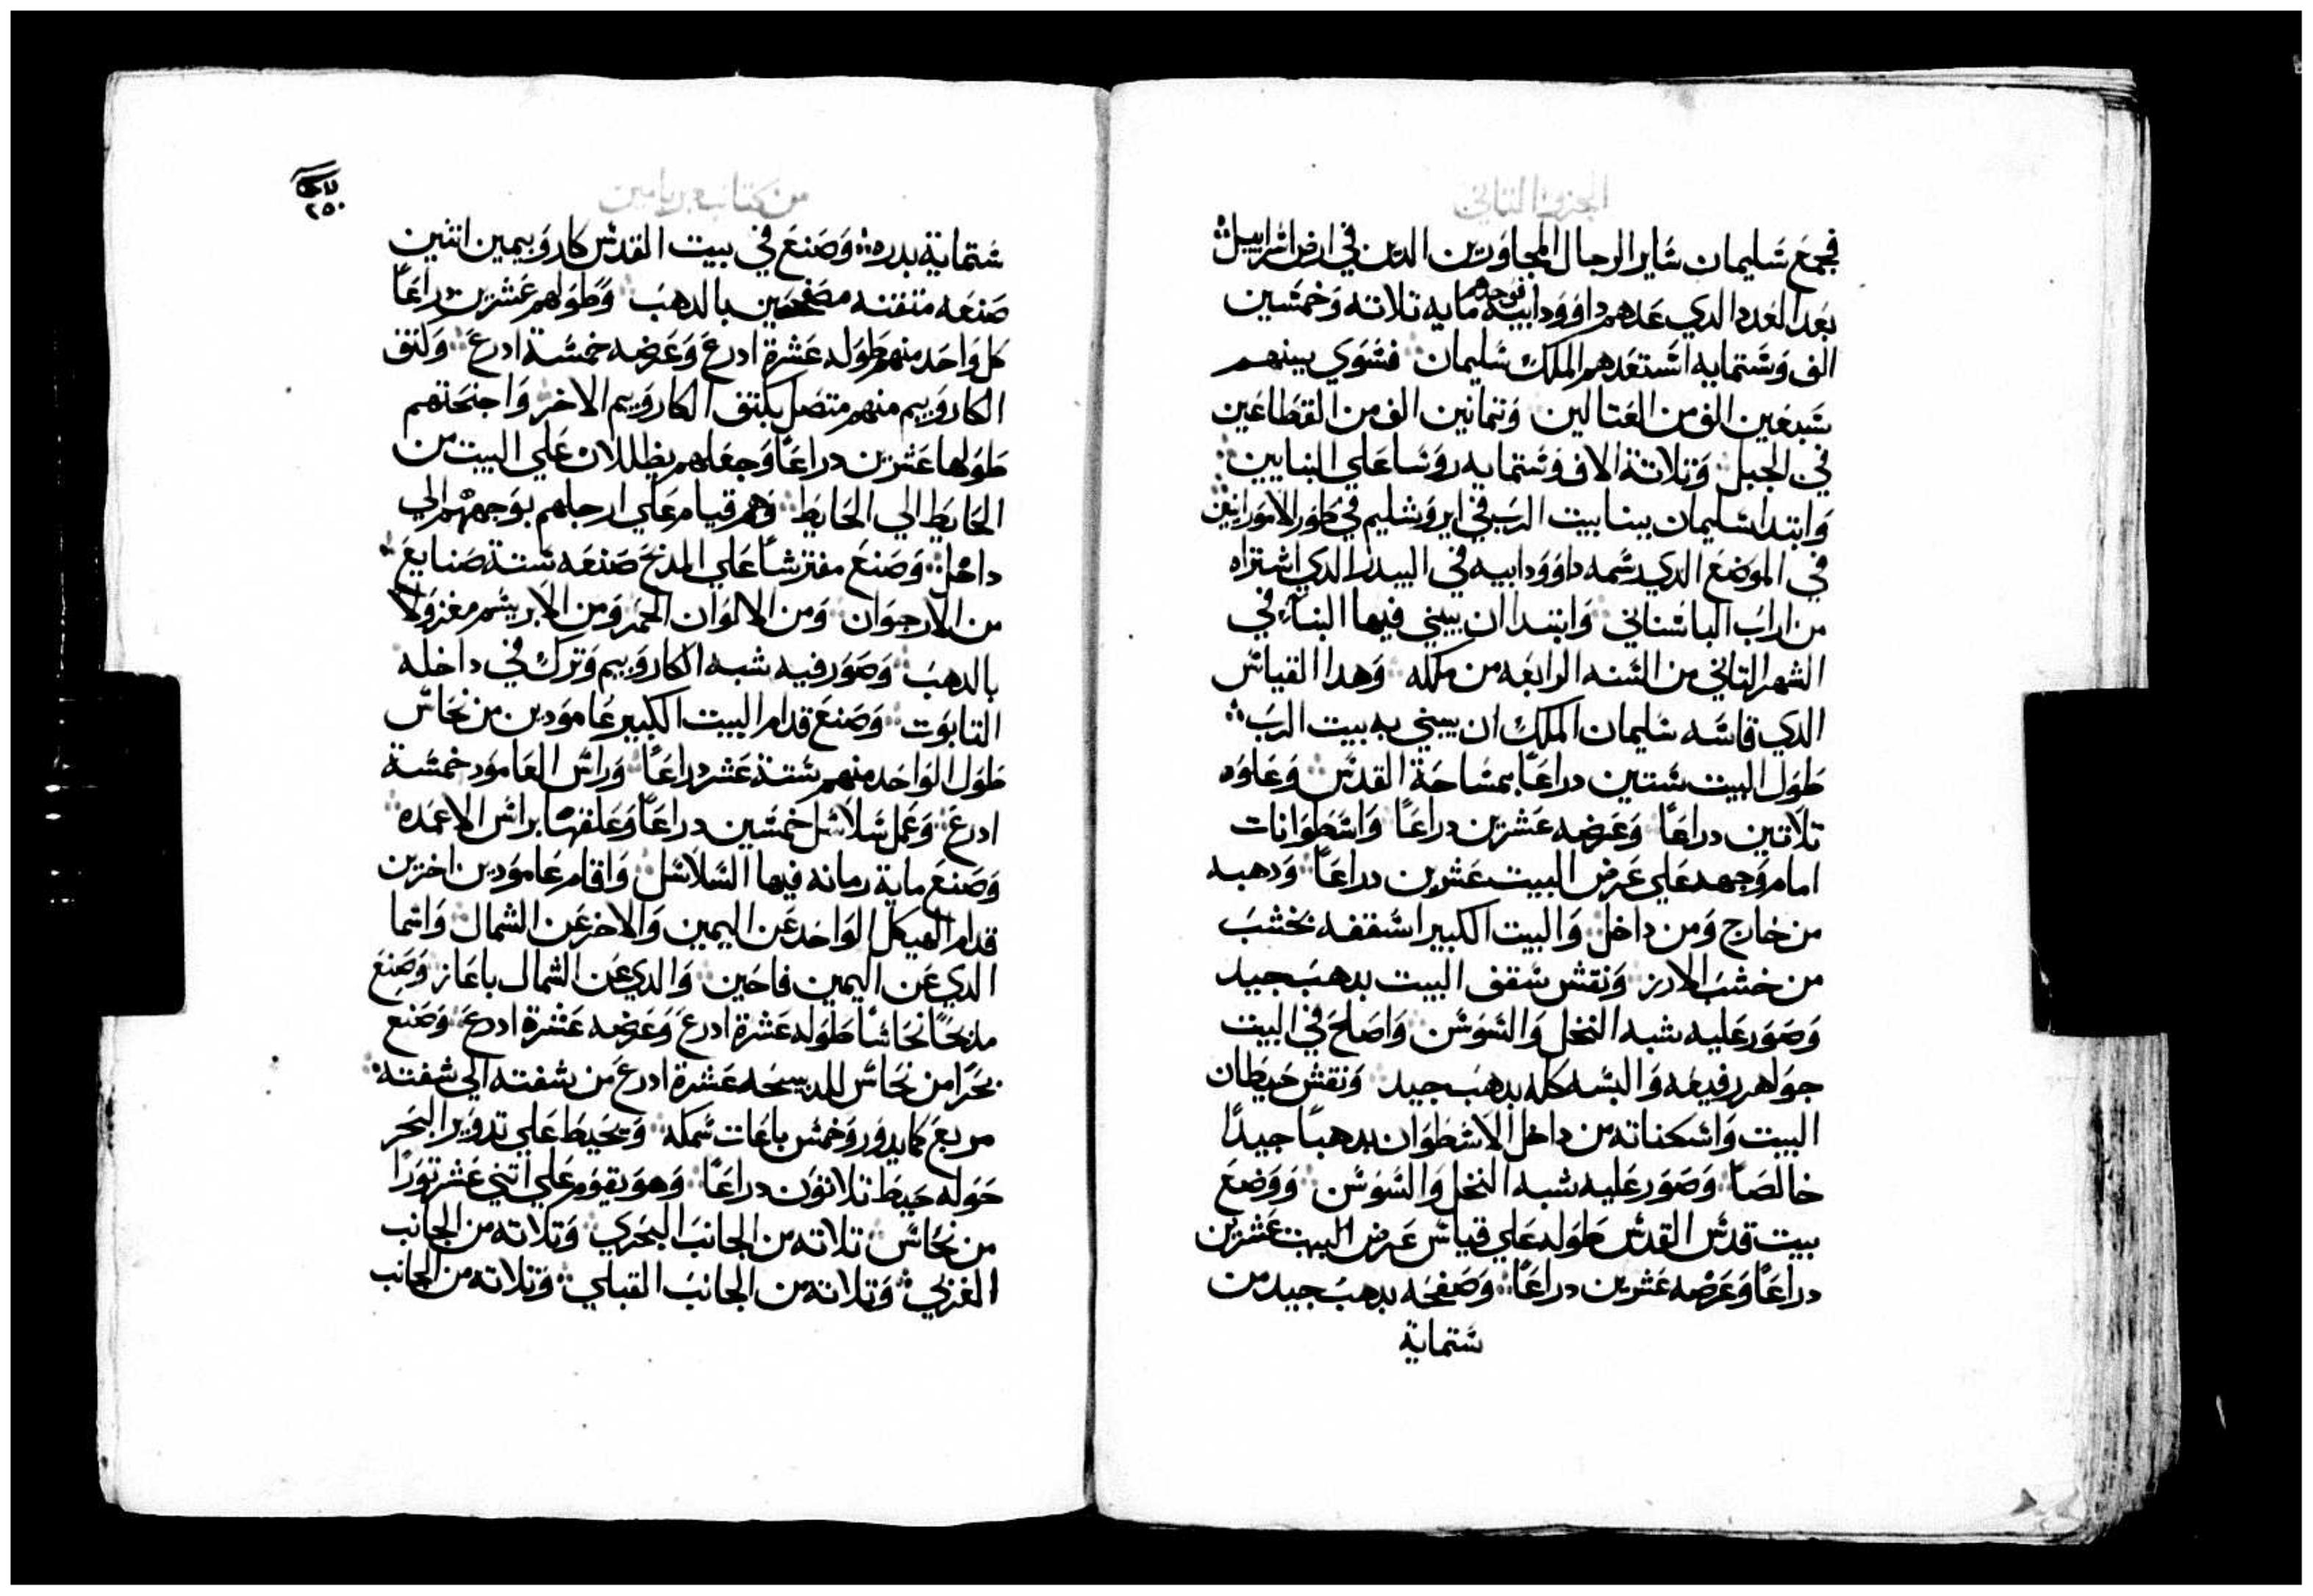 الجزو التاني
فجمع سليمان ساير الرجال المجاورين الدين في ارض اسراييل
بعد العدد الدي عدهم داوود ابيه فوجدهم مايه تلاته وخمسين
الف وستمايه استعدهم الملك سليمان فسوي بينهم
سبعين الف من العتالين وتمانين الف من القطاعين
في الجبل وتلاتة الاف وستمايه روسا علي البنايين
وابتدا سليمان ببنا بيت الرب في ايروشليم في طور الامورانيين
في الموضع الدي رسمه داوود ابيه في البيدر الدي اشتراه
من اراب الباسناني وابتدا ان يبني فيها البناء في
الشهر التاني من السنه الرابعه من ملكه وهدا القياس
الدي قاسه سليمان الملك ان يبني به بيت الرب
طول البيت ستين دراعًا بمساحة القدس وعلوه
تلاتين دراعًا وعرضه عشرين دراعًا واسطوانات
امام وجهه علي عرض البيت عشرين دراعًا ودهبه
من خارج ومن داخل والبيت الكبير اسقفه بخشب
من خشب الارز ونقش سقف البيت بدهب جيد
وصور عليه شبه النخل والسوسن واصلح في البيت
جواهر رفيعه والبسه كله بدهب جيد ونقش حيطان
البيت واسكناته من داخل الاسطوان بدهبًا جيدًا
خالصًا وصور عليه شبه النخل والسوسن ووضع
بيت قدس القدس طوله علي قياس عرض البيت عشرين
دراعًا وعرضه عشرين دراعًا وصفحه بدهب جيد من
ستماية
من كتاب بريامين
٢٥٠
ستماية بدره وصنع في بيت القدس كاروبيمين اتنين
صنعه متقنه مصفحين بالدهب وطولهم عشرين دراعًا
كل واحد منهم طوله عشرة ادرع وعرضه خمسة ادرع وكتف
الكاروبيم منهم متصل بكتف الكاروبيم الاخر واجنحتهم
طولها عشرين دراعًا وجعلهم يظللان علي البيت من
الحايط الي الحايط وهم قيام علي ارجلهم بوجههم الي
داخل وصنع مفترشًا علي المدبح صنعه ستة صنايع
من الارجوان ومن الالوان الحمر ومن الابريسم مغزولاً
بالدهب وصور فيه شبه الكاروبيم وترك في داخله
التابوت وصنع قدام البيت الكبير عامودين من نحاس
طول الواحد منهم ستة عشر دراعًا وراس العامود خمسة
ادرع وعمل سلاسل خمسين دراعًا وعلقها براس الاعمده
وصنع ماية رمانه فيها السلاسل واقام عامودين اخرين
قدام الهيكل الواحد عن اليمين والاخر عن الشمال واسما
الدي عن اليمين فاحين والدي عن الشمال باعاز وصنع
مدبحًا نحاسًا طوله عشرة ادرع وعرضه عشرة ادرع وصنع
بحرًا من نحاس عشرة ادرع من شفته الي شفته
مربع كما يدور وخمس باعات سمكه وتحيط علي تدوير البحر
حوله حيط تلاتون دراعًا وهو يقوم علي اتني عشر تورًا
من نحاس تلاته من الجانب البحري وتلاته من الجانب
الغربي وتلاته من الجانب القبلي وتلاته من الجانب